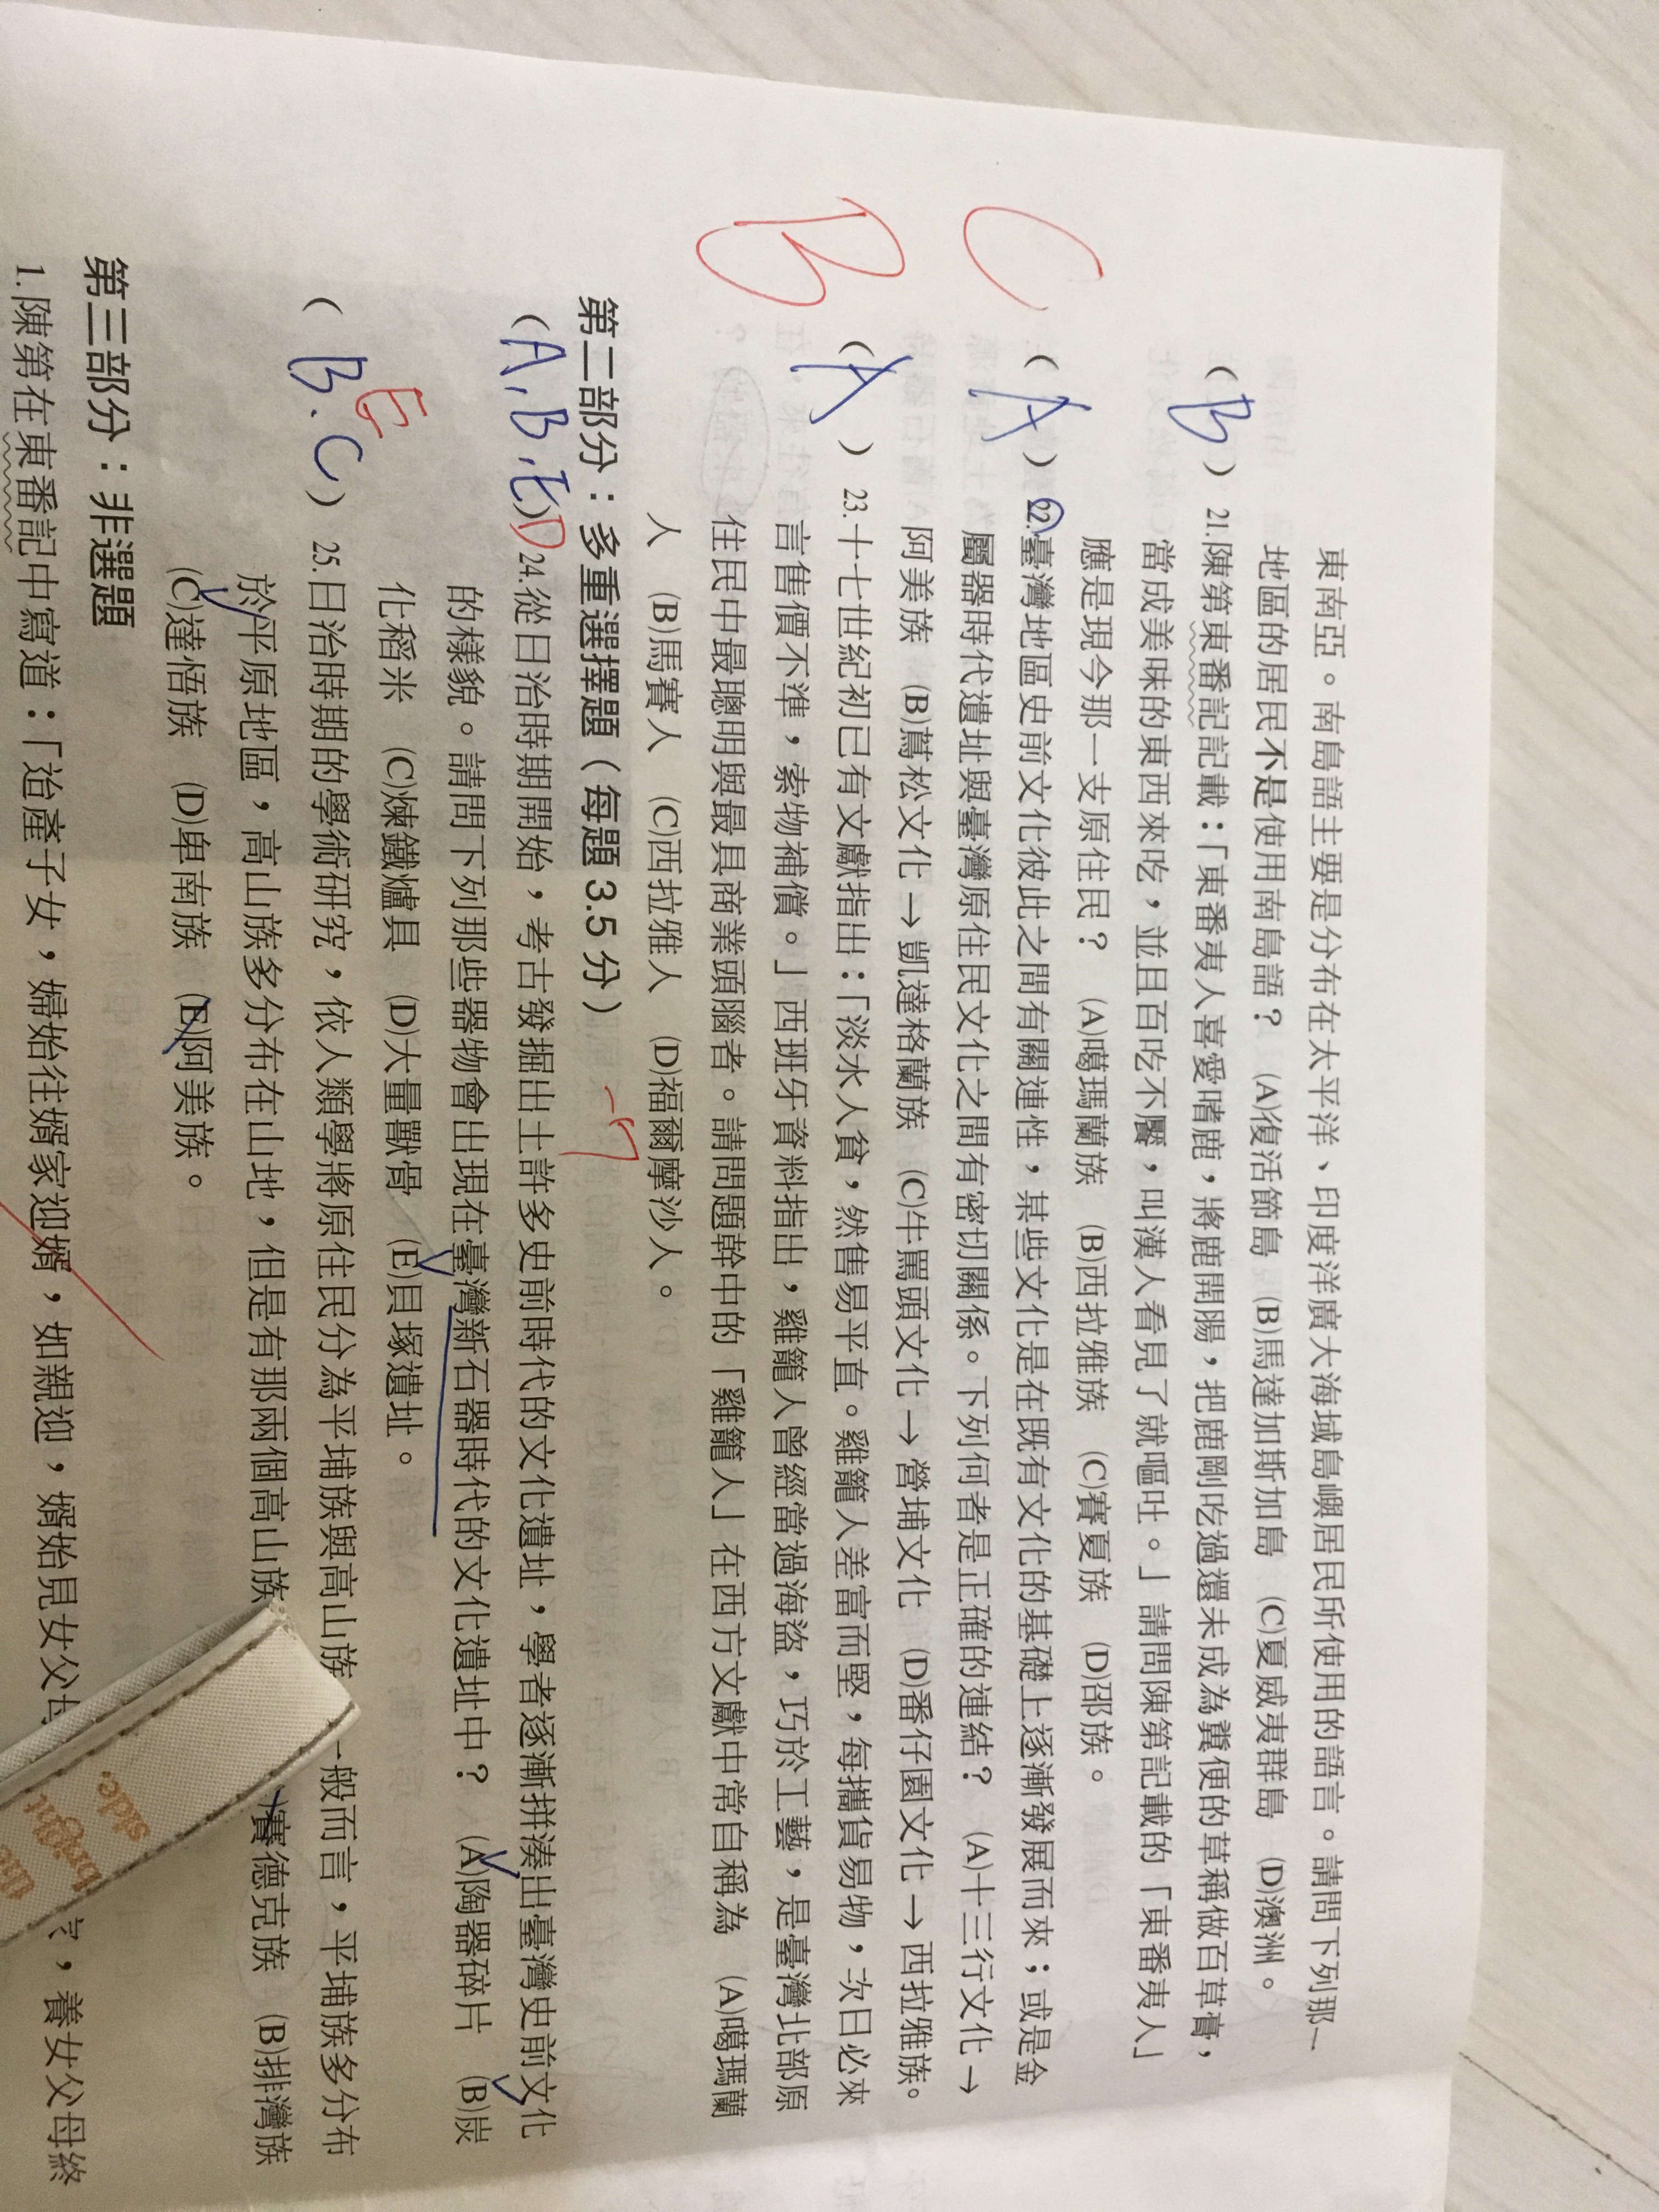 東南亞。南島語主要是分布在太平洋、印度洋廣大海域島嶼居民所使用的語言。請問下列那一
地區的居民不是使用南島語？ (A)復活節島 (B)馬達加斯加島 (C)夏威夷群島 (D)澳洲。
( B ) 21.陳第東番記記載：「東番夷人喜愛嗜鹿，將鹿開腸，把鹿剛吃過還未成為糞便的草稱做百草膏，
當成美味的東西來吃，並且百吃不饜，叫漢人看見了就嘔吐。」請問陳第記載的「東番夷人」
應是現今那一支原住民？ (A)噶瑪蘭族 (B)西拉雅族 (C)賽夏族 (D)邵族。
C ( A ) 22.臺灣地區史前文化彼此之間有關連性，某些文化是在既有文化的基礎上逐漸發展而來；或是金
屬器時代遺址與臺灣原住民文化之間有密切關係。下列何者是正確的連結？ (A)十三行文化→
阿美族 (B)蔦松文化→凱達格蘭族 (C)牛罵頭文化→營埔文化 (D)番仔園文化→西拉雅族。
B ( A ) 23.十七世紀初已有文獻指出：「淡水人貧，然售易平直。雞籠人差富而堅，每攜貨易物，次日必來
言售價不準，索物補償。」西班牙資料指出，雞籠人曾經當過海盜，巧於工藝，是臺灣北部原
住民中最聰明與最具商業頭腦者。請問題幹中的「雞籠人」在西方文獻中常自稱為 (A)噶瑪蘭
人 (B)馬賽人 (C)西拉雅人 (D)福爾摩沙人。
第二部分：多重選擇題（每題 3.5 分） -7
( A, B, E ) D 24.從日治時期開始，考古發掘出土許多史前時代的文化遺址，學者逐漸拼湊出臺灣史前文化
的樣貌。請問下列那些器物會出現在臺灣新石器時代的文化遺址中？ (A)陶器碎片 (B)炭
化稻米 (C)煉鐵爐具 (D)大量獸骨 (E)貝塚遺址。
( B、C ) E 25.日治時期的學術研究，依人類學將原住民分為平埔族與高山族 一般而言，平埔族多分布
於平原地區，高山族多分布在山地，但是有那兩個高山族 )賽德克族 (B)排灣族
(C)達悟族 (D)卑南族 (E)阿美族。
第三部分：非選題
1.陳第在東番記中寫道：「迨產子女，婦始往婿家迎婿，如親迎，婿始見女父母 ，養女父母終
bright
side.